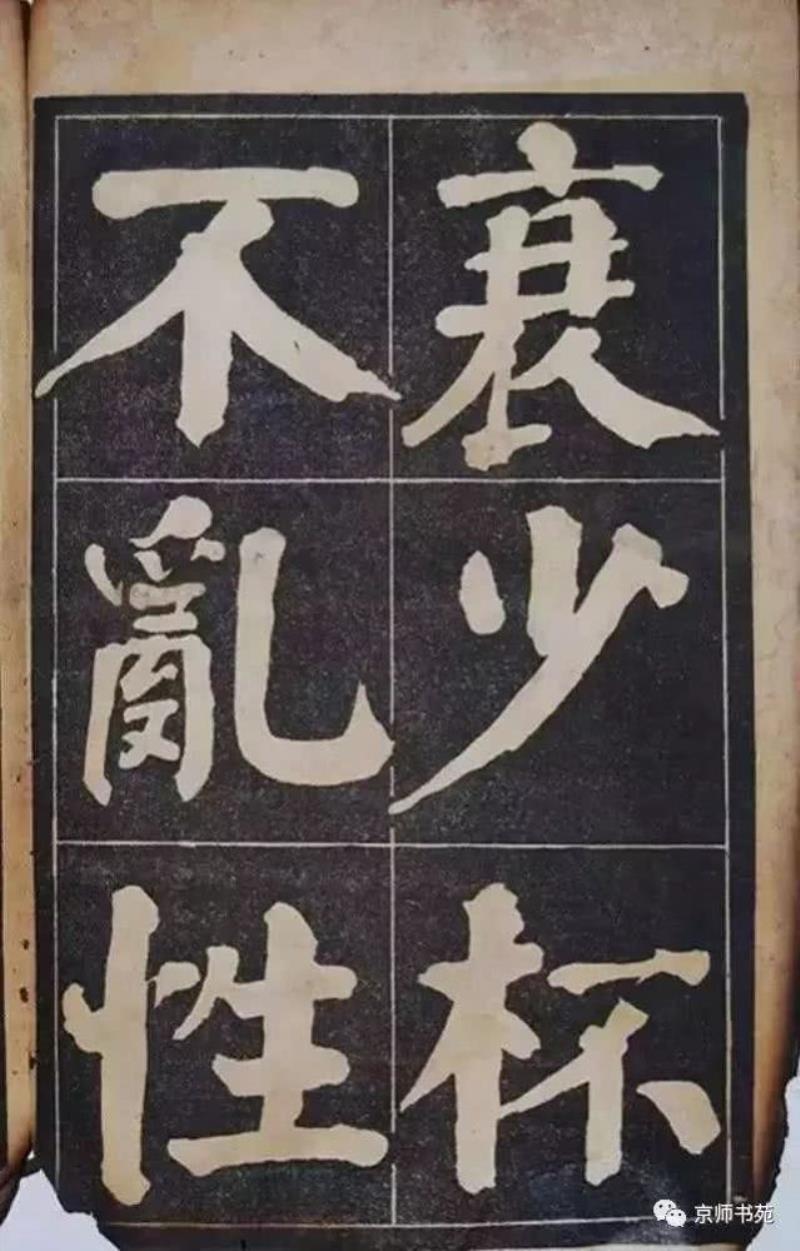 衰少杯
不亂性
京师书苑